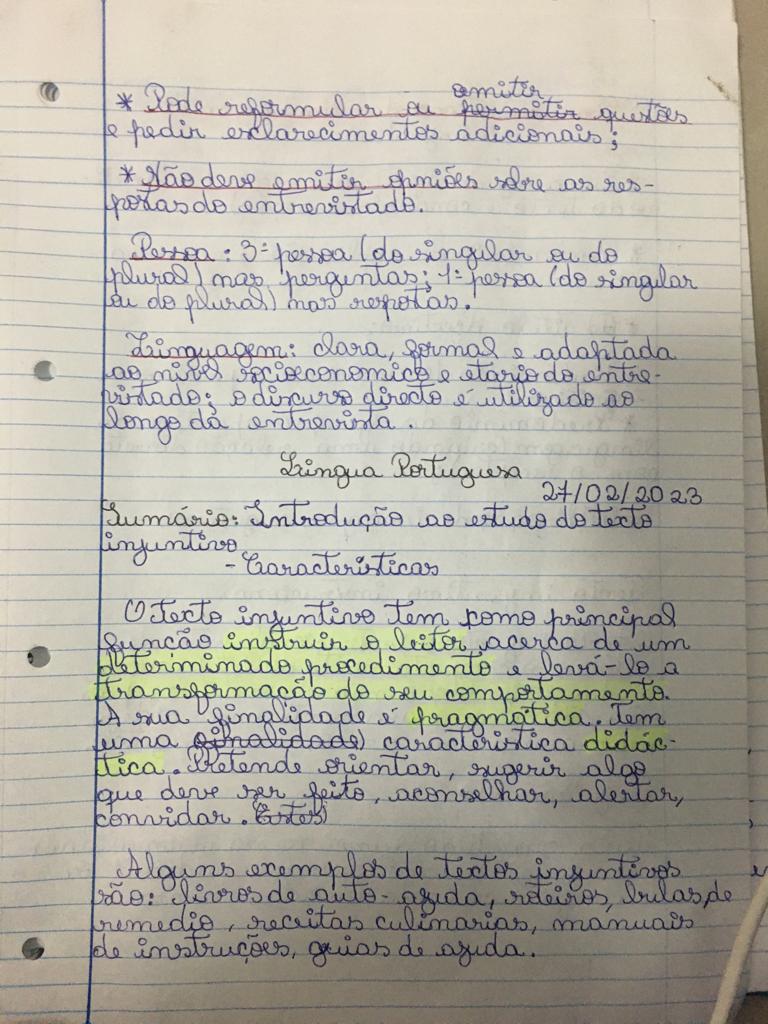 omitir
* Pode reformular ou permitir questões
e pedir esclarecimentos adicionais;
* Não deve emitir opniões sobre as res-
postas do entrevistado.
Pessoa: 3ª pessoa (do singular ou do
plural) nas perguntas; 1ª pessoa (do singular
ou do plural) nas respostas.
Linguagem: clara, formal e adaptada
ao nivel socioeconomico e etário do entre-
vistado; o discurso directo é utilizado ao
longo da entrevista.
Lingua Portuguesa
27/02/2023
Sumário: Introdução ao estudo do texto
injuntivo
- Caracteristicas
O texto injuntivo tem como principal
função instruir o leitor acerca de um
determinado procedimento e levá-lo a
transformação do seu comportamento.
A sua finalidade é pragmática. Tem
uma (finalidade) caracteristica didác-
tica. Pretende orientar, sugerir algo
que deve ser feito, aconselhar, alertar,
convidar. Estes)
Alguns exemplos de textos injuntivos
são: livros de auto-ajuda, roteiros, bulas de
remedio, receitas culinarias, manuais
de instruções, guias de ajuda.